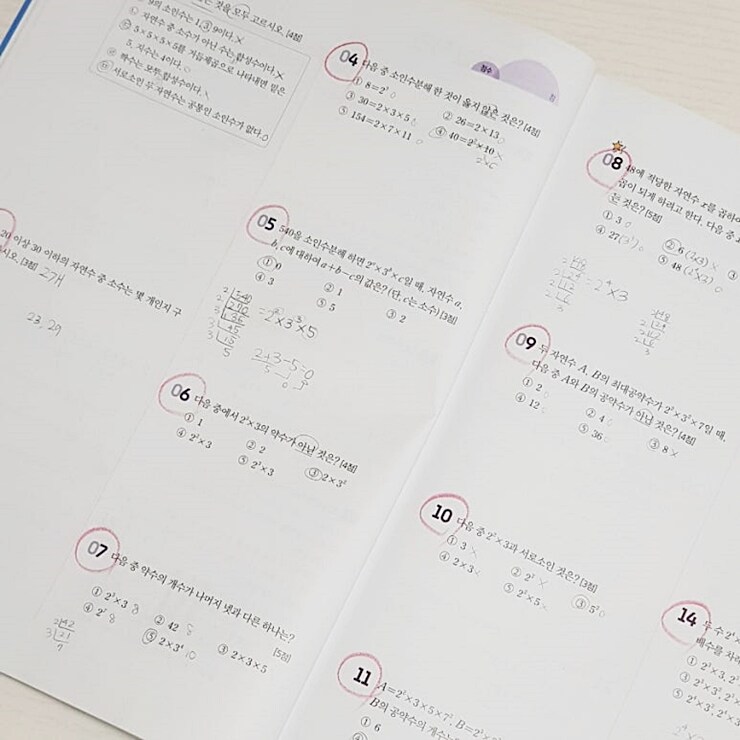 것을 모두 고르시오. [4점]
9의 소인수는 1, 3, 9이다. X
자연수 중 소수가 아닌 수는 합성수이다. X
5×5×5×5를 거듭제곱으로 나타내면 밑은
5, 지수는 4이다. O
짝수는 모두 합성수이다. X
서로소인 두 자연수는 공통인 소인수가 없다. O
20 이상 30 이하의 자연수 중 소수는 몇 개인지 구
시오. [3점] 2개
23, 29
04 다음 중 소인수분해 한 것이 옳지 않은 것은? [4점]
① 8=2³
② 26=2×13
③ 30=2×3×5
④ 40=2²×10 X
⑤ 154=2×7×11
05 540을 소인수분해 하면 2ᵃ×3ᵇ×c일 때, 자연수 a,
b, c에 대하여 a+b-c의 값은? (단, c는 소수) [3점]
① 0
② 1
③ 2
④ 3
⑤ 5
2 540
2 270
3 135
3 45
3 15
5
=2²×3³×5
2+3-5=0
06 다음 중에서 2³×3의 약수가 아닌 것은? [4점]
① 1
② 2
③ 2×3²
④ 2²×3
⑤ 2³×3
07 다음 중 약수의 개수가 나머지 넷과 다른 하나는?
[5점]
① 2³×3 8
② 42 8
③ 2×3×5
④ 2⁷ 8
⑤ 2×3⁴ 10
2 42
3 21
7
점수
점
08 48에 적당한 자연수 x를 곱하여
곱이 되게 하려고 한다. 다음 중
는 것은? [5점]
① 3
② 6 (2×3) X
③
④ 27 (3³)
⑤ 48 (2⁴×3)
=2⁴×3
09 두 자연수 A, B의 최대공약수가 2²×3²×7일 때,
다음 중 A와 B의 공약수가 아닌 것은? [4점]
① 2
② 4
③ 8 X
④ 12
⑤ 36
10 다음 중 2²×3과 서로소인 것은? [3점]
① 3
② 2²
③ 5²
④ 2×3
⑤ 2²×5
11
B의 공약수의 개수는
① 6
14 두 수
배수를 차